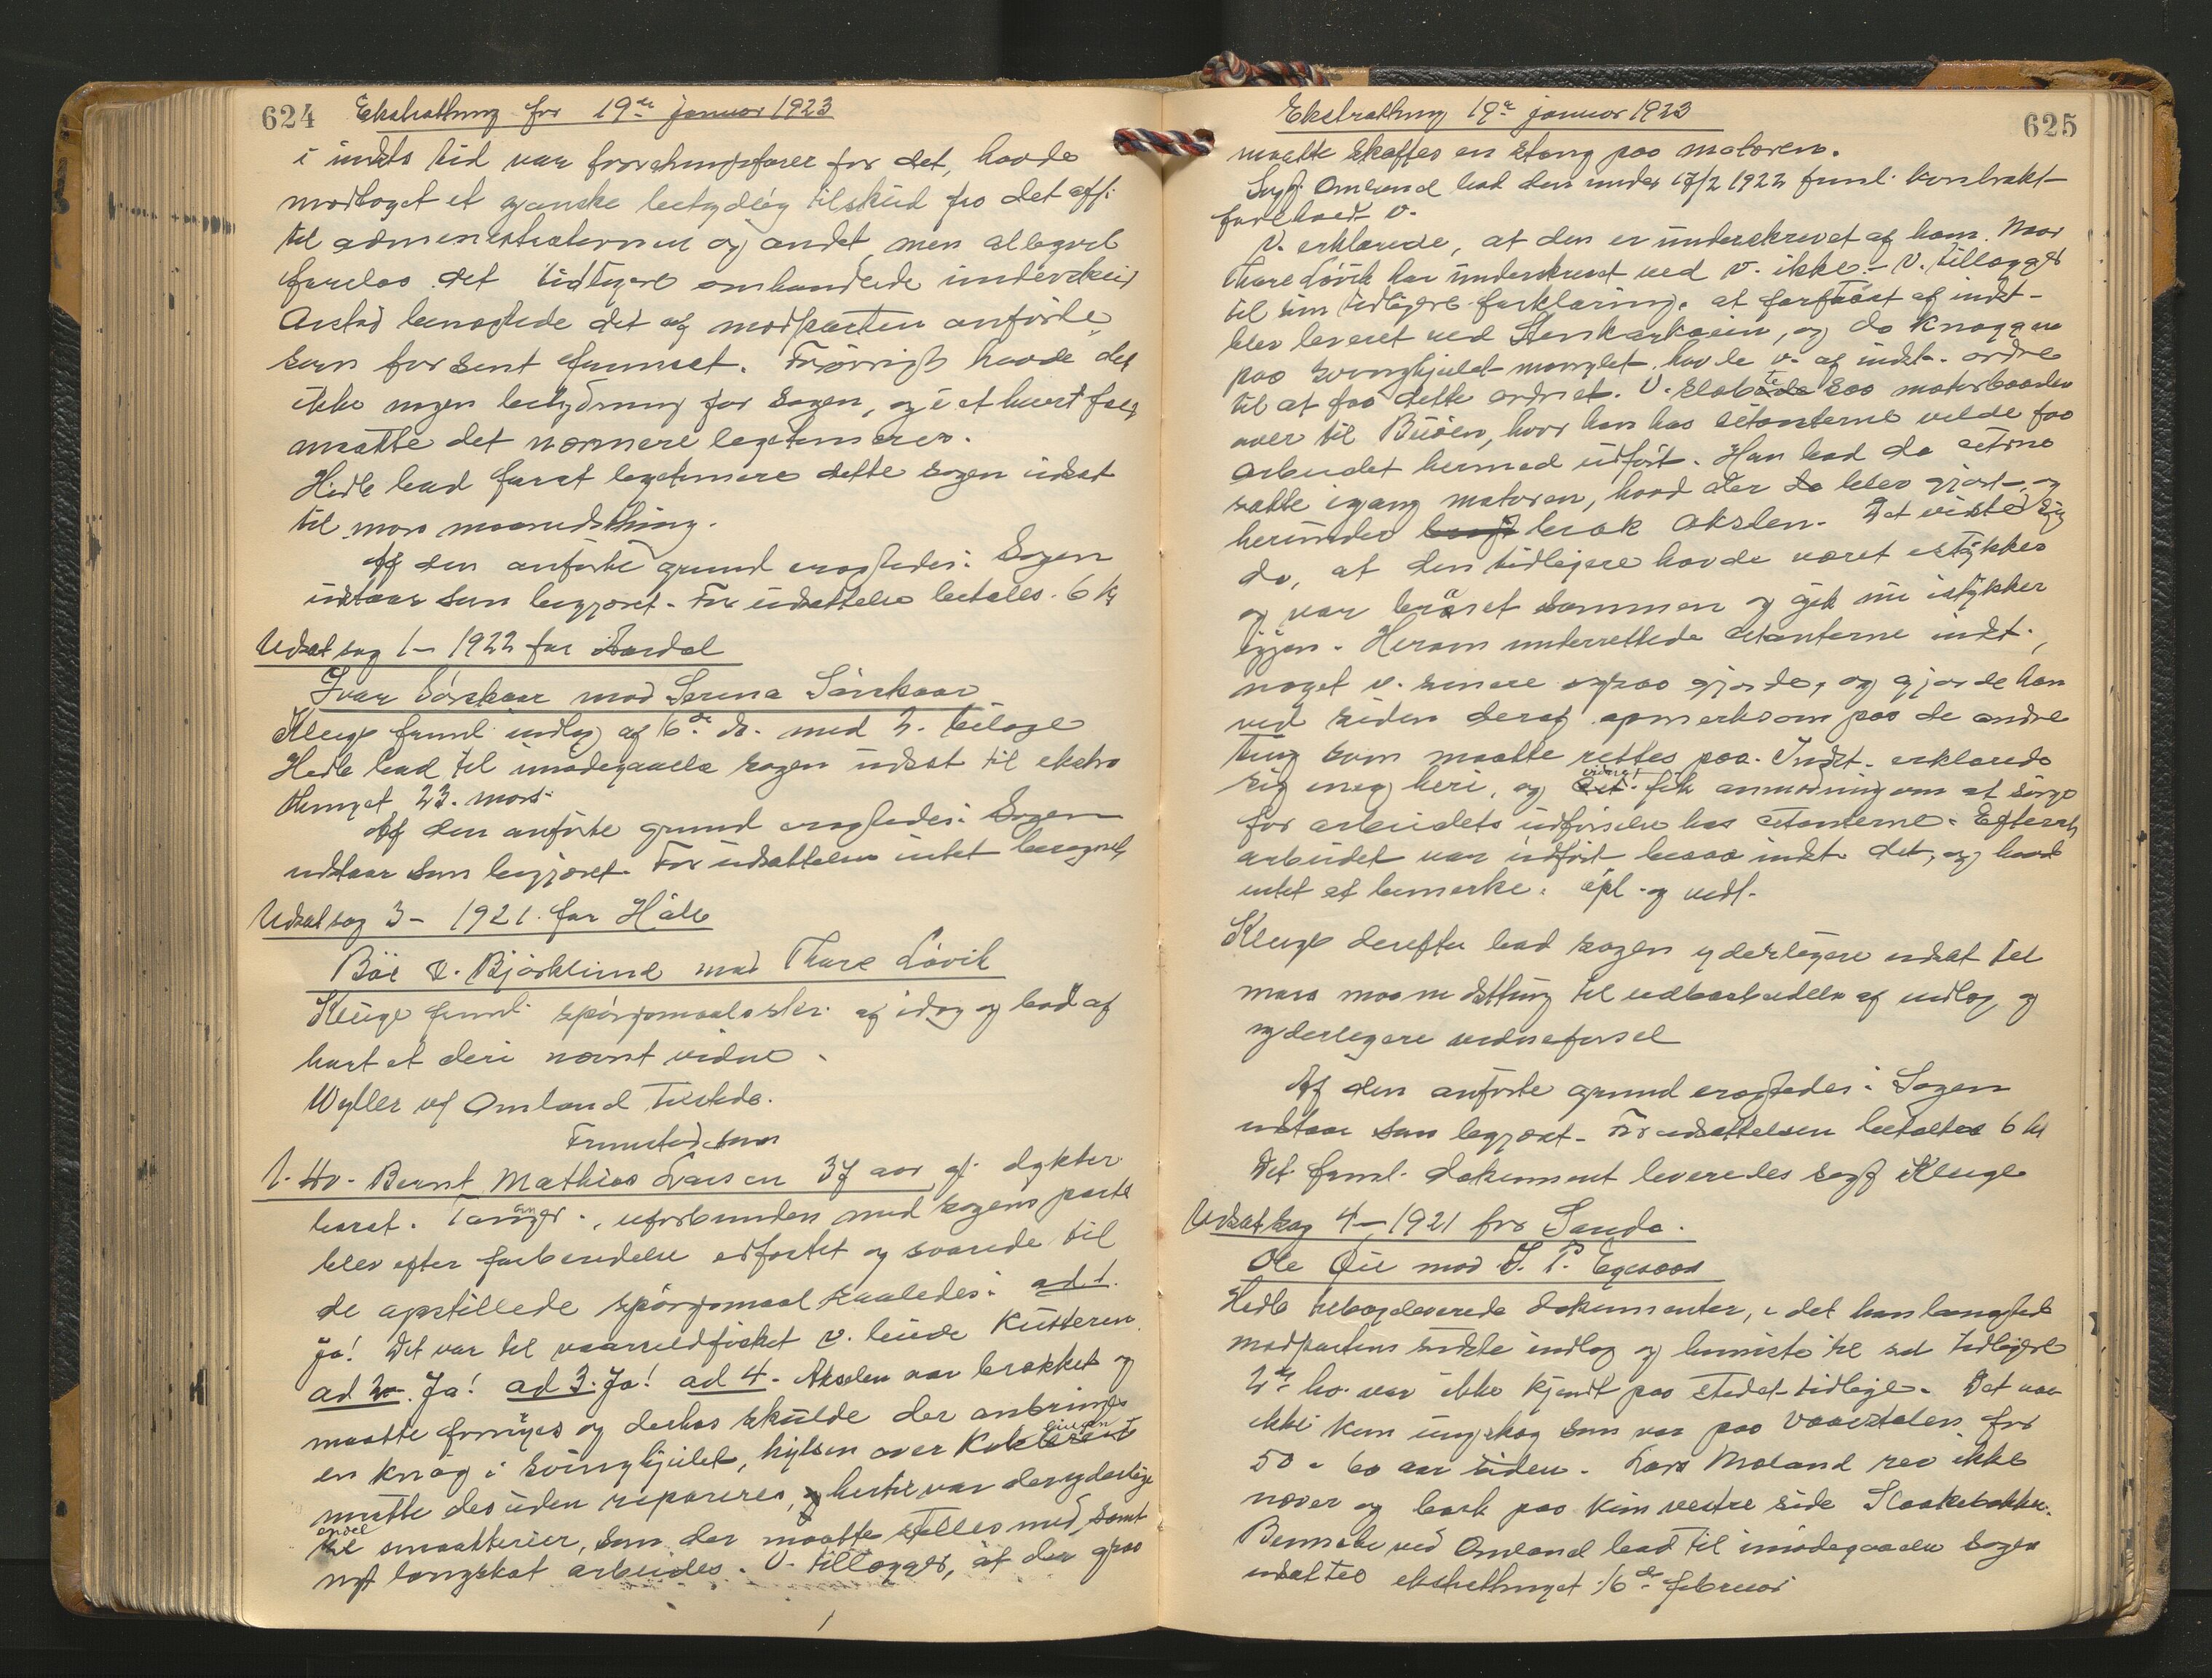 624 Ekstratthing for 19de januar 1923
i indsts tid var forretningsfører for det, havde
modtaget et ganske betydelig tilskud fra det off.
til administrationen og andet, men allegvel
forelaa det tidligere omhandlede underskud
Arstad benegtede det af modparten anførte
som for sent fremsat. Forøvrigt havde det
ikke nogen betydning for sagen, og i et hvert fald
maatte det nærmere legitimeres.
Hidle bad forat legitimere dette sagen udsat
til mars maanedsthing.
Af den anførte grund eragtedes: Sagen
udstaar som begjæret. For udsættelse betales 6 kr
Udsat sag 1 - 1922 for Aardal
Ivar Sørskaar mod Serina Sørskaar
Kluge freml. indlæg af 16de ds. med 2 bilage
Hidle bad til imødegaaelse sagen udsat til ekstra
thinget 23. mars.
Af den anførte grund eragtedes: Sagen
udstaar som begjæret. For udsættelsen intet beregnet
Udsat sag 3 - 1921 for Hålle
Bøe & Bjørklund mod Thore Løvik
Kluge freml. spørgsmaalsskr. af idag og bad af
hørt et deri nævnt vidne.
Wyller vf Omland tilstede.
Fremstod som
1. Hv. Bernt Mathias Larsen 37 aar gl. dykker
barat. Tananger, uforbunden med sagens parter
blev efter forberedelse edfæstet og svarede til
de opstillede spørgsmaal saaledes: ad 1.
Ja! Det var til vaarsildfisket v. leiede Kutteren.
ad 2. Ja! ad 3. Ja! ad 4. Akselen var brækket og
maatte fornyes og derhos skulde der anbringes
en knag i svinghjulet, hylsen over
maatte desuden repareres, og hertil var der yderlige
endel smaatterier, som der maatte stelles med, samt
nyt langskat arbeides. V. tillægger, at der ogsaa
625
Ekstratthing 19de januar 1923
maatte skaffes en stang paa motoren.
Sagf. Omland bad den under 17/2 1922 freml. kontrakt
foreholdt v.
V. erklærede, at den er underskrevet af ham. Naar
Thore Løvik har underskrevet ved v. ikke. V. tillægger
til sin tidligere forklaring, at farkost af indst.
blev leveret ved Stenkarkaien, og da knaggen
paa svinghjulet manglet, havde v. af indst. ordre
til at faa dette ordnet. V. slæbte saa motorbaaden
over til Buøen, hvor han hos citanterne vilde faa
arbeidet hermed udført. Han bad da citrne
sætte igang motoren, hvad der blev gjort, og
herunder bræk akslen. Det viste sig
da, at den tidligere havde været istykker
og var brăset sammen og gik nu istykker
igjen. Herom underrettede citanterne indst.,
noget v. senere ogsaa gjorde, og gjorde han
ved siden deraf opmerksom paa de andre
ting som maatte rettes paa. Indst. erklærede
sig enig heri, og vidnet fik anmodning om at sørge
for arbeidets udførelse hos citanterne. Efterat
arbeidet var udført besaa indst. det, og havde
intet at bemerke. Opl. og vedt.
Kluge derefter bad sagen yderligere udsat til
mars maanedstthing til udarbeidelse af indlæg og
yderligere vidneførsel
Af den anførte grund eragtedes: Sagen
udstaar som begjæret. For udsættelsen betaltes 6 kr
Det freml. dokument leveredes sagf Kluge
Udsat sag 4 - 1921 for Sauda.
Ole Øie mod S. P. Egeaaas
Hidle tilbageleverede dokumenter, i det han benegtede
modpartens sidste indlæg og henviste til sit tidligere
2det hv. var ikke kjendt paa stedet tidlige. Det var
ikke kun ungskog som var paa Vaarstølen for
50 a 60 aar siden. Lars Moland rev ikke
næver og bark paa kun vestre side Slaakebakken.
Bennetre ved Omland bad til imødegaaelse sagen
udsattes ekstratthinget 16de februar